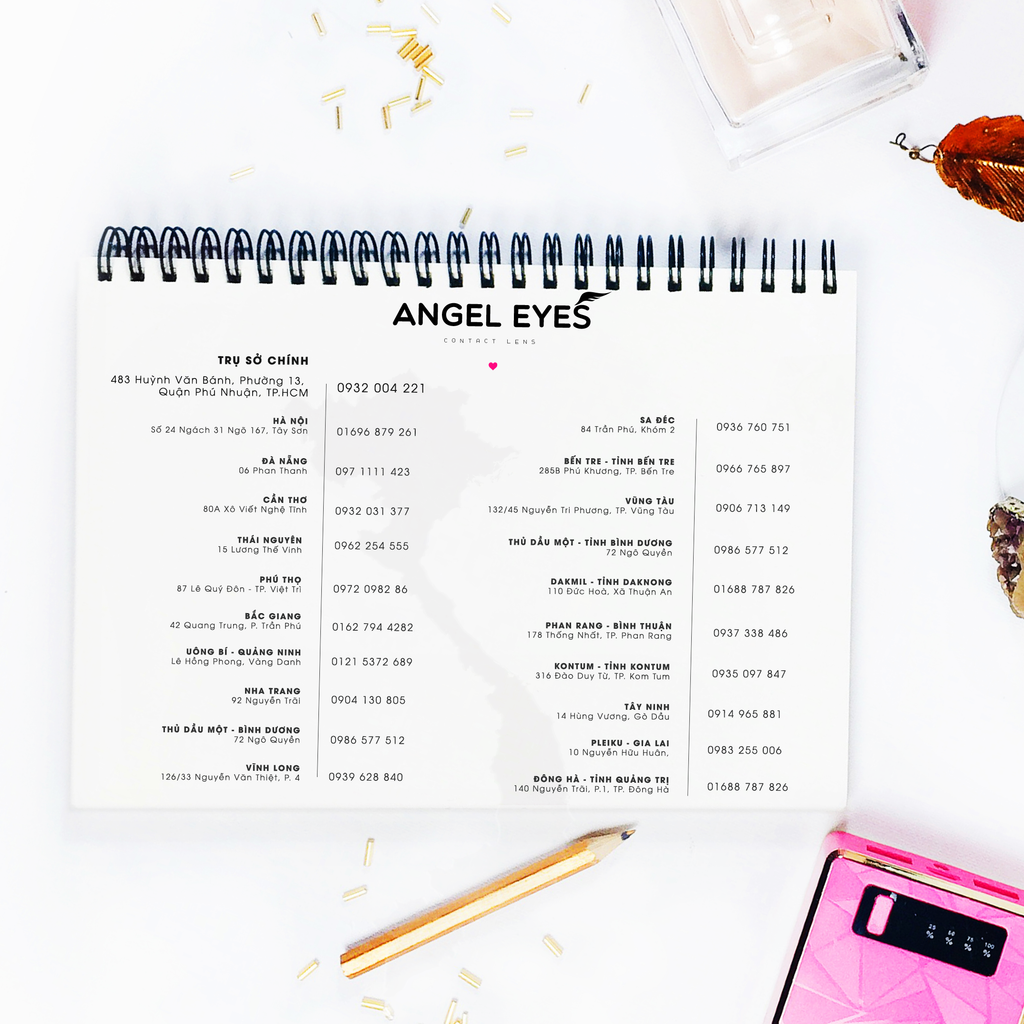 ANGEL EYES
CONTACT LENS
TRỤ SỞ CHÍNH
483 Huỳnh Văn Bánh, Phường 13,
Quận Phú Nhuận, TP.HCM
0932 004 221
HÀ NỘI
Số 24 Ngách 31 Ngõ 167, Tây Sơn
01696 879 261
ĐÀ NẴNG
06 Phan Thanh
097 1111 423
CẦN THƠ
80A Xô Viết Nghệ Tĩnh
0932 031 377
THÁI NGUYÊN
15 Lương Thế Vinh
0962 254 555
PHÚ THỌ
87 Lê Quý Đôn - TP. Việt Trì
0972 0982 86
BẮC GIANG
42 Quang Trung, P. Trần Phú
0162 794 4282
UÔNG BÍ - QUẢNG NINH
Lê Hồng Phong, Vàng Danh
0121 5372 689
NHA TRANG
92 Nguyễn Trãi
0904 130 805
THỦ DẦU MỘT - BÌNH DƯƠNG
72 Ngô Quyền
0986 577 512
VĨNH LONG
126/33 Nguyễn Văn Thiệt, P. 4
0939 628 840
SA ĐÉC
84 Trần Phú, Khóm 2
0936 760 751
BẾN TRE - TỈNH BẾN TRE
285B Phú Khương, TP. Bến Tre
0966 765 897
VŨNG TÀU
132/45 Nguyễn Tri Phương, TP. Vũng Tàu
0906 713 149
THỦ DẦU MỘT - TỈNH BÌNH DƯƠNG
72 Ngô Quyền
0986 577 512
DAKMIL - TỈNH DAKNONG
110 Đức Hoà, Xã Thuận An
01688 787 826
PHAN RANG - BÌNH THUẬN
178 Thống Nhất, TP. Phan Rang
0937 338 486
KONTUM - TỈNH KONTUM
316 Đào Duy Từ, TP. Kom Tum
0935 097 847
TÂY NINH
14 Hùng Vương, Gò Dầu
0914 965 881
PLEIKU - GIA LAI
10 Nguyễn Hữu Huân,
0983 255 006
ĐÔNG HÀ - TỈNH QUẢNG TRỊ
140 Nguyễn Trãi, P.1, TP. Đông Hà
01688 787 826
25 % 50 % 75 % 100 %